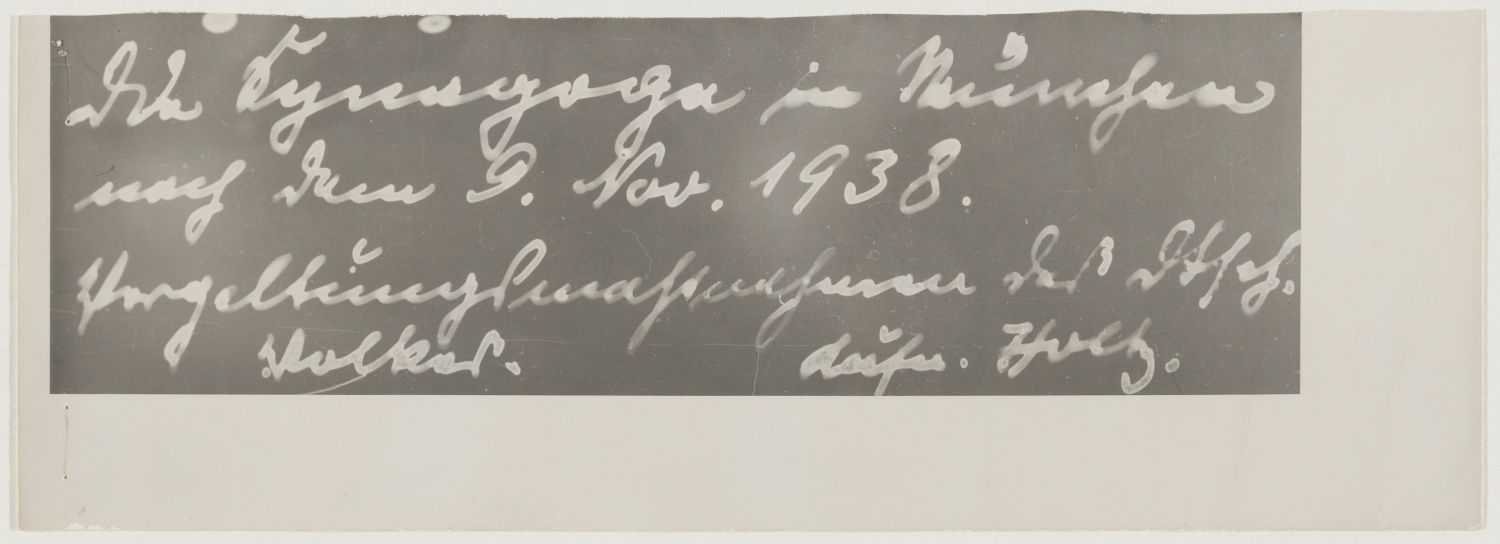 Die Synagoge in München
nach dem 9. Nov. 1938.
Vergeltungsmaßnahmen des Dtsch.
Volkes. Aufn. Holtz.